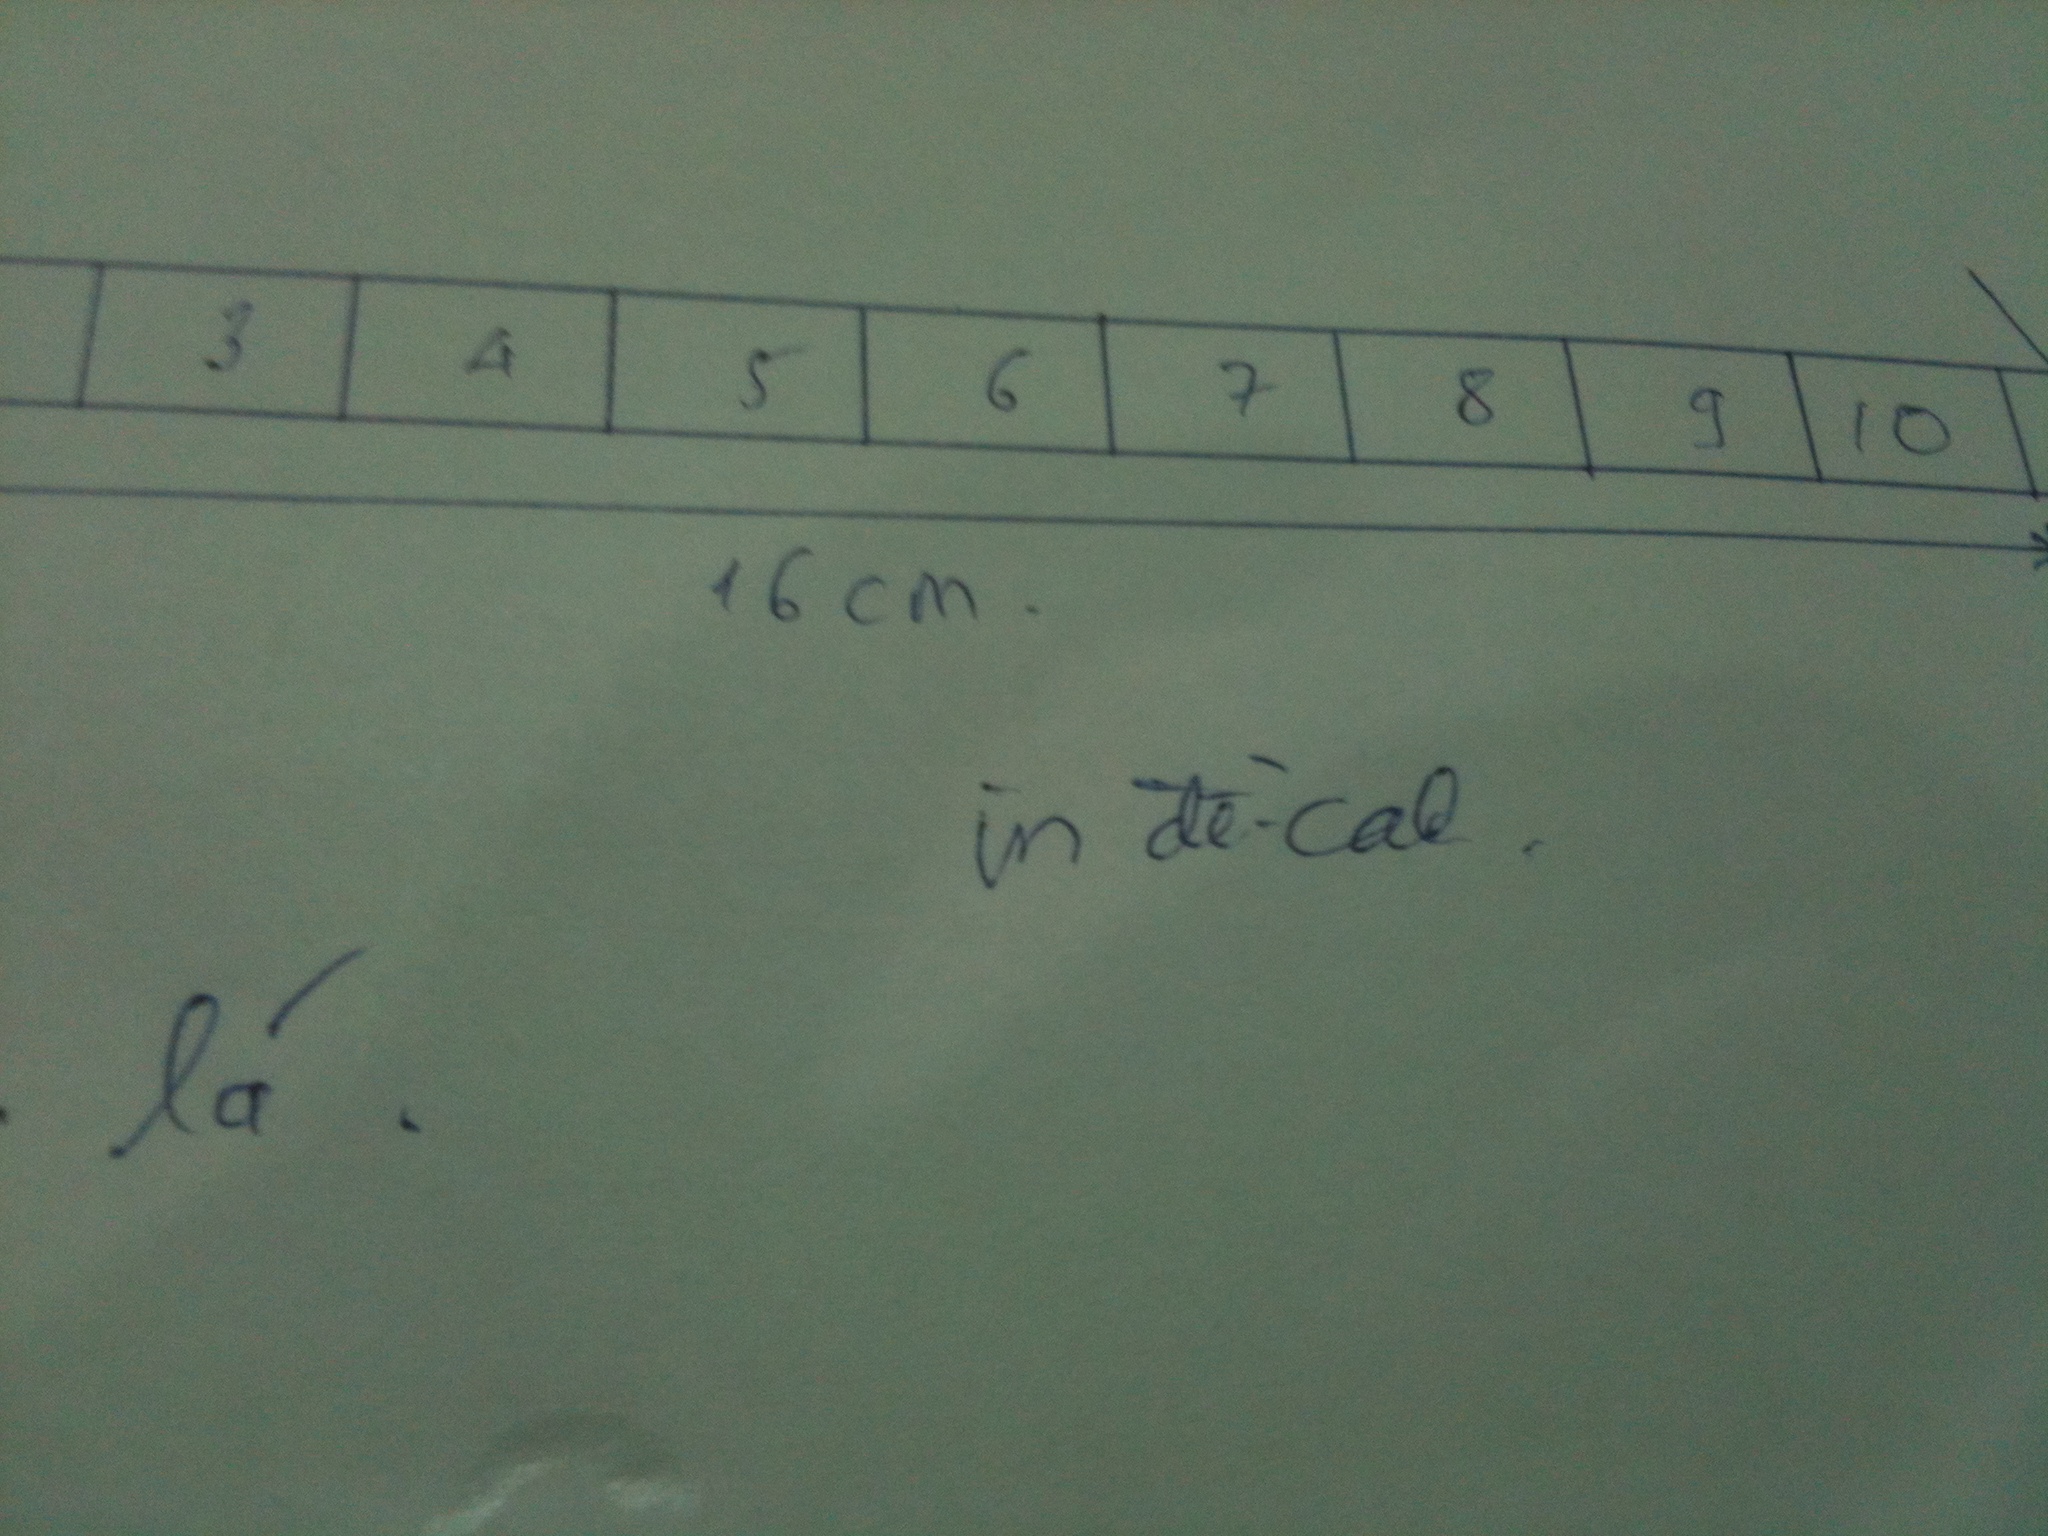 3 4 5 6 7 8 9 10
16 cm.
in đề-cal.
lá.